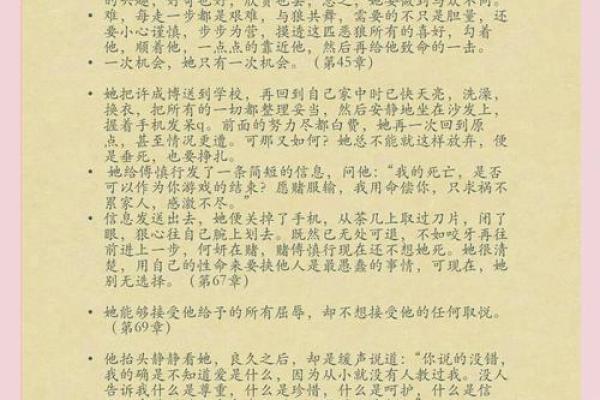 的兴趣，好奇也好，欣赏也罢，总之，她要做到与众不同。
• 难，每走一步都是艰难，与狼共舞，需要的不只是胆量，还
要小心谨慎，步步为营，摸透这匹恶狼所有的喜好，勾着
他，顺着他，一点点的靠近他，然后再给他致命的一击。
• 一次机会，她只有一次机会。（第45章）
• 她把许成博送到学校，再回到自己家中时已快天亮，洗澡，
换衣，把所有的一切都整理妥当，然后安静地坐在沙发上，
握着手机发呆q。前面的努力尽都白费，她再一次回到原
点，甚至情况更遭。可那又如何？她总不能就这样放弃，便
是垂死，也要挣扎。
• 她给傅慎行发了一条简短的信息，问他：“我的死亡，是否
可以作为你游戏的结束？愿赌服输，我用命偿你，只求祸不
累家人，感激不尽。”
• 信息发送出去，她便关掉了手机，从茶几上取过刀片，闭了
眼，狠心往自己腕上划去。既然已无处可退，不如咬牙再往
前进上一步，何妍在赌，赌傅慎行现在还不想她死。她很清
楚，用自己的性命来要挟他人是最愚蠢的事情，可现在，她
别无选择。（第67章）
• 她能够接受他给予的所有屈辱，却不想接受他的任何取悦。
（第69章）
• 他抬头静静看她，良久之后，却是缓声说道：“你说的没错，
我的确是不知道爱是什么，因为从小就没有人教过我。没人
告诉我什么是尊重，什么是珍惜，什么是呵护，什么是信